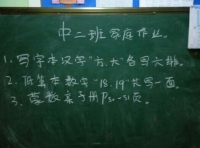 中二班家庭作业。
1、写字本汉字"方、大"各写六排。
2、价算本数字"18、19"共写一面。
3、蒙数亲子册P30-31页。